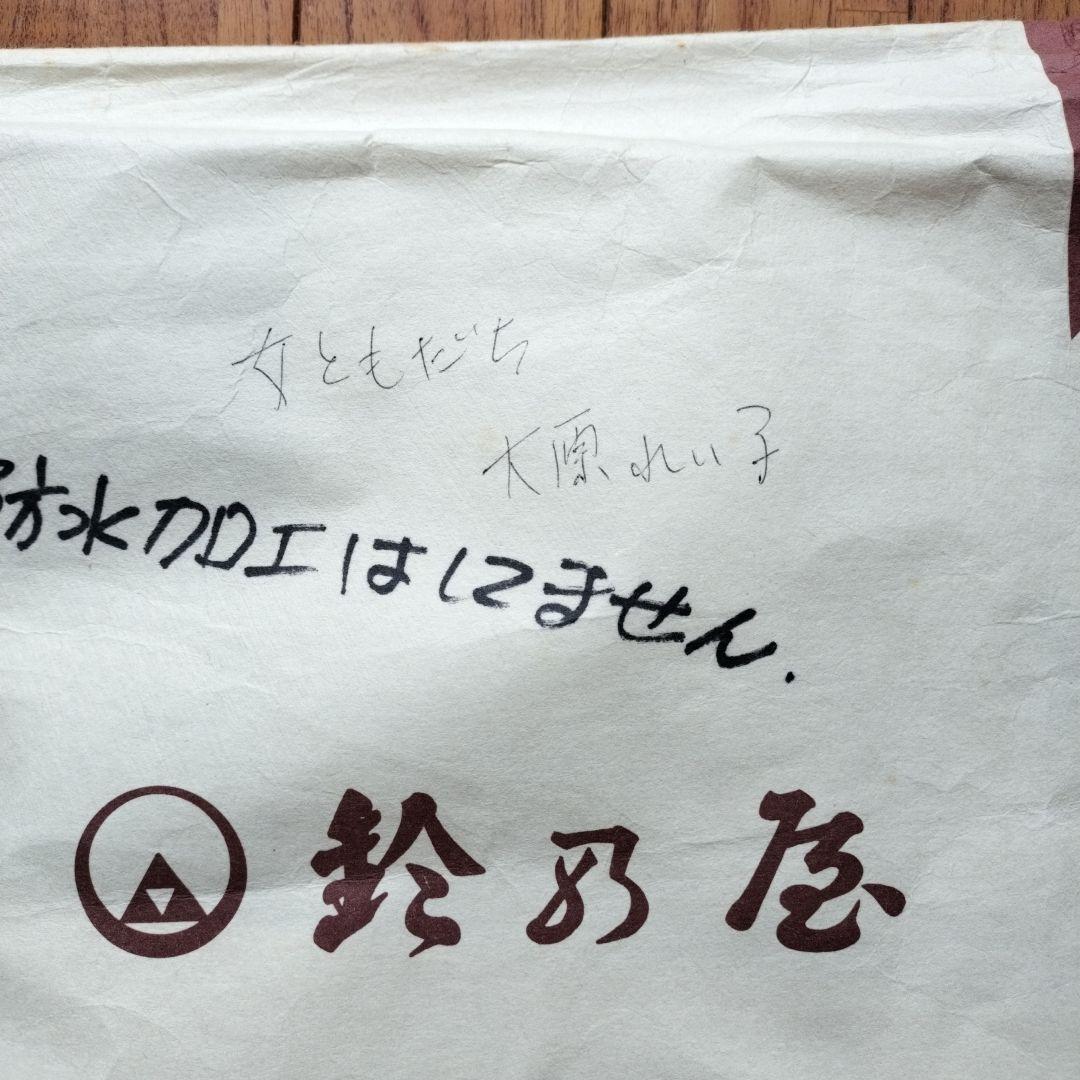 女ともだち
大原れい子
防水加工はしてません.
鈴乃屋